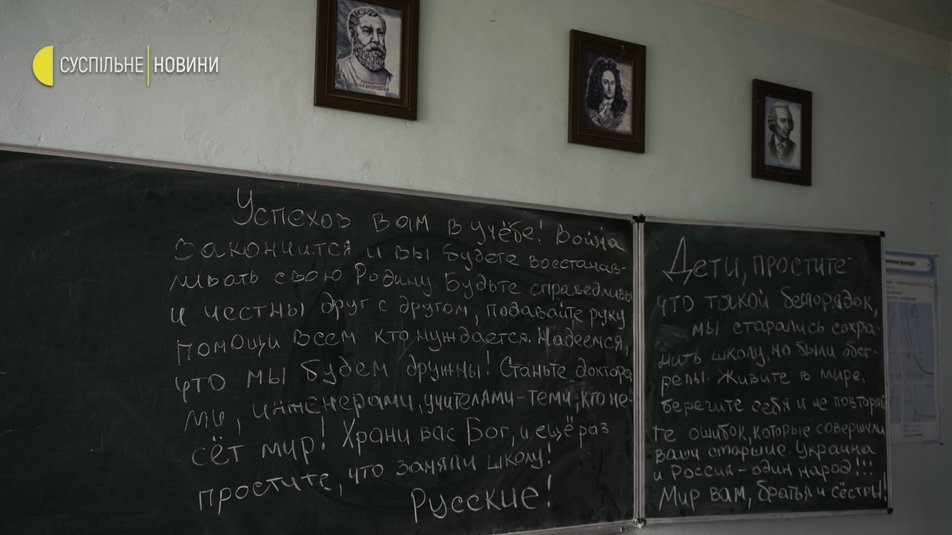 СУСПІЛЬНЕ НОВИНИ
Успехов вам в учёбе! Война
закончится и вы будете восстанав-
ливать свою Родину. Будьте справедливы
и честны друг с другом, подавайте руку
помощи всем кто нуждается. Надеемся,
что мы будем дружны! Станьте доктора-
ми, инженерами, учителями-теми, кто не-
сёт мир! Храни вас Бог, и ещё раз
простите, что заняли школу!
Русские!
Дети, простите
что такой беспорядок,
мы старались сохра-
нить школу, но были обст-
релы. Живите в мире,
берегите себя и не повторяй
те ошибок, которые совершили
ваши старшие. Украина
и Россия-один народ!!!
Мир вам, братья и сёстры!